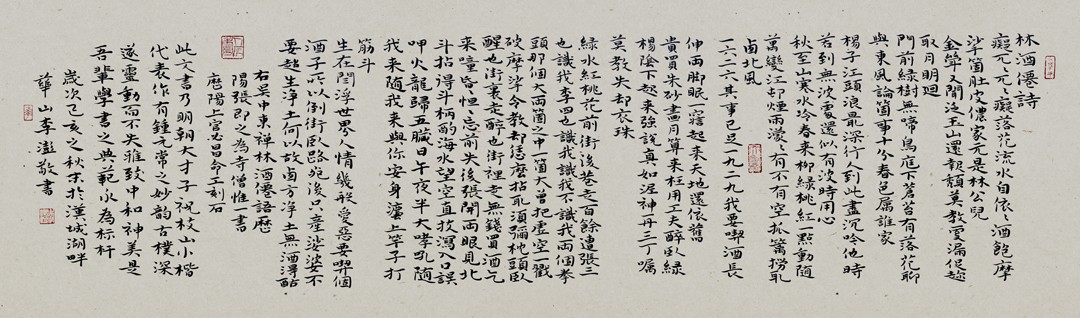 林酒僊詩
癡兀兀兀癡落花流水自依依酒飽摩
挲箇肚皮儂家元是林公兒
金斝又聞泛玉山還報頹莫教更漏促趁
取月明迴
門前綠樹無啼鳥庭下蒼苔有落花聊
與東風論箇事十分春色屬誰家
楊子江頭浪最深行人到此盡沉吟他時
若到無波處還似有波時用心
秋至山寒水冷春來柳綠桃紅一點動隨
萬變江邨煙雨濛濛有不有空不空笊籬撈取
西北風
一六二六其事已足一九二九我要喫酒長
伸兩腳眠一寤起來天地還依舊
貴買朱砂畫月算來枉用工夫醉臥綠
楊陰下起來強說真如泥神再三叮嚀
莫教失却衣珠
綠水紅桃花前街後巷走百餘遭張三
也識我李四也識我識我不識我兩個拳
頭那個大兩箇之中一箇大曾把虛空一戳
破摩挲令教却恁麼拈取須彌枕頭臥
醒也街裏走醉也街裡走無錢買酒乞
來噇昏怛怛忘前失後張開兩眼見北
斗拈得斗柄酌海水望空直抝瀉入口誤
呷火龍歸五臟日午夜半大哮吼隨
我來隨我來與你安身瀘上竿子打
筋斗
生在閻浮世界人情幾般愛惡要喫個
酒子所以倒街臥路跑後只產娑婆不
要超生淨土何以故西方淨土無酒得酤
右吳中東禪林酒僊語歷
陽張即之為寺僧惟一書
歷陽上官必昌命工刻石
此文書乃明朝大才子祝枝山小楷
代表作有鍾元常之妙韵古樸深
邃靈動而不失雅致中和神美是
吾輩學書之典範永為标杆
歲次己亥之秋末於漢城湖畔
華山李澎敬書